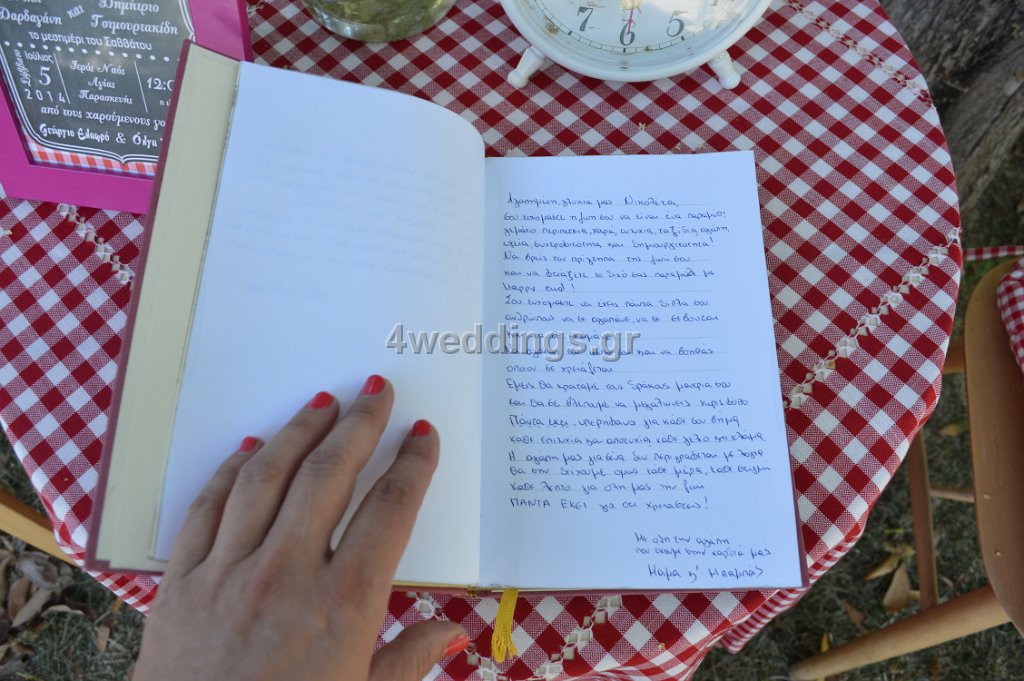 Δαρδαγάνη και Δημήτριο
Τσιμουρτακίδη
το μεσημέρι του Σαββάτου
Σάββατο
Ιούλιος
5
2014
Ιερός Ναός
Αγίας
Παρασκευής
12:0
από τους χαρούμενους γο
Γεώργιο Ελαφρό & Όλγα
7 6 5
Αγαπημένη, γλυκιά μας Νικολέτα,
σου ευχόμαστε η ζωή σου να είναι ένα παραμύθι
γεμάτο περιπέτεια, χαρά, ευτυχία, ταξίδια, αγάπη,
υγεία, συντροφικότητα και δημιουργικότητα!
Να βρεις τον πρίγκηπα της ζωή σου
και να φτιάξετε το δικό σας παραμύθι με
happy end!
Σου ευχόμαστε να έχεις πάντα δίπλα σου
ανθρώπους να σε αγαπάνε, να σε σέβονται
4weddings.gr
και να βοηθάς
όποιον σε χρειάζεται.
Εμείς θα κρατάμε τους δράκους μακριά σου
και θα σε βλέπουμε να μεγαλώνεις
Πάντα εκεί, υπερήφανοι για κάθε σου βήμα
κάθε επιτυχία και αποτυχία κάθε γέλιο και κλάμα.
Η αγάπη μας για σένα δεν περιγράφεται με λόγια
θα στην δείχνουμε όμως κάθε μέρα, κάθε στιγμή
κάθε λεπτό για όλη μας την ζωή
ΠΑΝΤΑ ΕΚΕΙ για ότι χρειαστείς!
Με όλη την αγάπη
που έχουμε στην καρδιά μας
Μαμά κι' Μπαμπάς